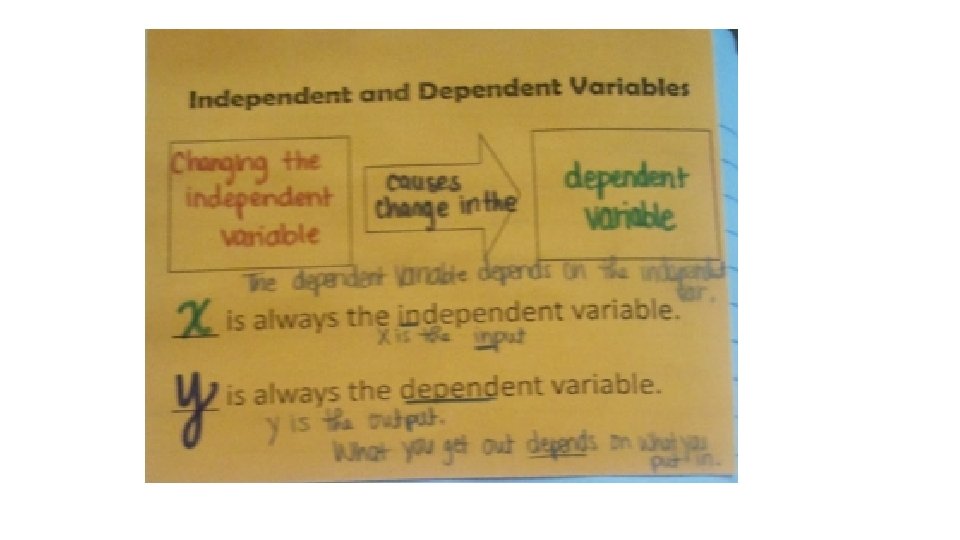 Independent and Dependent Variables
Changing the
independent
variable
causes
change in the
dependent
variable
The dependent variable depends on the independent
var.
x is always the independent variable.
x is the input
y is always the dependent variable.
y is the output.
What you get out depends on what you
put in.